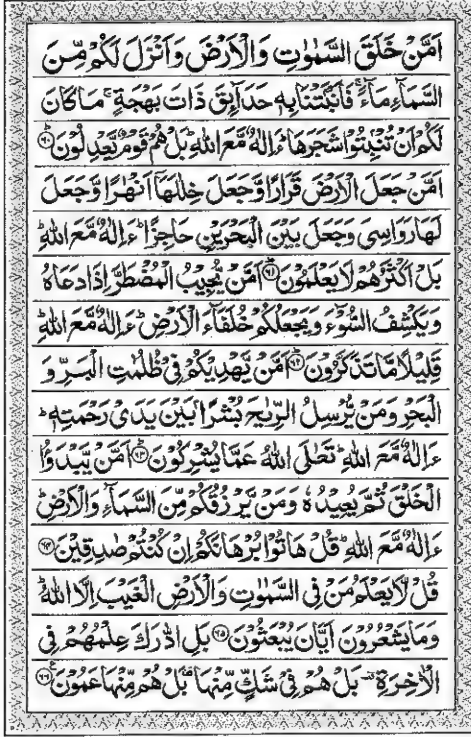 اَمَّنْ خَلَقَ السَّمٰوٰتِ وَالْاَرْضَ وَاَنْزَلَ لَكُمْ مِّنَ
السَّمَآءِ مَآءً ۚ فَاَنْۢبَتْنَا بِهٖ حَدَآئِقَ ذَاتَ بَهْجَةٍ ۚ مَا كَانَ
لَكُمْ اَنْ تُنْۢبِتُوْا شَجَرَهَا ؕ ءَاِلٰهٌ مَّعَ اللّٰهِ ؕ بَلْ هُمْ قَوْمٌ يَّعْدِلُوْنَ ؕ﴿۶۰﴾
اَمَّنْ جَعَلَ الْاَرْضَ قَرَارًا وَّجَعَلَ خِلٰلَهَاۤ اَنْهٰرًا وَّجَعَلَ
لَهَا رَوَاسِىَ وَجَعَلَ بَيْنَ الْبَحْرَيْنِ حَاجِزًا ؕ ءَاِلٰهٌ مَّعَ اللّٰهِ ؕ
بَلْ اَكْثَرُهُمْ لَا يَعْلَمُوْنَ ؕ﴿۶۱﴾ اَمَّنْ يُّجِيْبُ الْمُضْطَرَّ اِذَا دَعَاهُ
وَيَكْشِفُ السُّوْٓءَ وَيَجْعَلُكُمْ خُلَفَآءَ الْاَرْضِ ؕ ءَاِلٰهٌ مَّعَ اللّٰهِ ؕ
قَلِيْلًا مَّا تَذَكَّرُوْنَ ؕ﴿۶۲﴾ اَمَّنْ يَّهْدِيْكُمْ فِىْ ظُلُمٰتِ الْبَرِّ وَ
الْبَحْرِ وَمَنْ يُّرْسِلُ الرِّيٰحَ بُشْرًۢا بَيْنَ يَدَىْ رَحْمَتِهٖ ؕ
ءَاِلٰهٌ مَّعَ اللّٰهِ ؕ تَعٰلَى اللّٰهُ عَمَّا يُشْرِكُوْنَ ؕ﴿۶۳﴾ اَمَّنْ يَّبْدَؤُا
الْخَلْقَ ثُمَّ يُعِيْدُهٗ وَمَنْ يَّرْزُقُكُمْ مِّنَ السَّمَآءِ وَالْاَرْضِ ؕ
ءَاِلٰهٌ مَّعَ اللّٰهِ ؕ قُلْ هَاتُوْا بُرْهَانَكُمْ اِنْ كُنْتُمْ صٰدِقِيْنَ ﴿۶۴﴾
قُلْ لَّا يَعْلَمُ مَنْ فِى السَّمٰوٰتِ وَالْاَرْضِ الْغَيْبَ اِلَّا اللّٰهُ ؕ
وَمَا يَشْعُرُوْنَ اَيَّانَ يُبْعَثُوْنَ ﴿۶۵﴾ بَلِ ادّٰرَكَ عِلْمُهُمْ فِى
الْاٰخِرَةِ ۟ بَلْ هُمْ فِىْ شَكٍّ مِّنْهَا ۟ بَلْ هُمْ مِّنْهَا عَمُوْنَ ﴿۶۶﴾